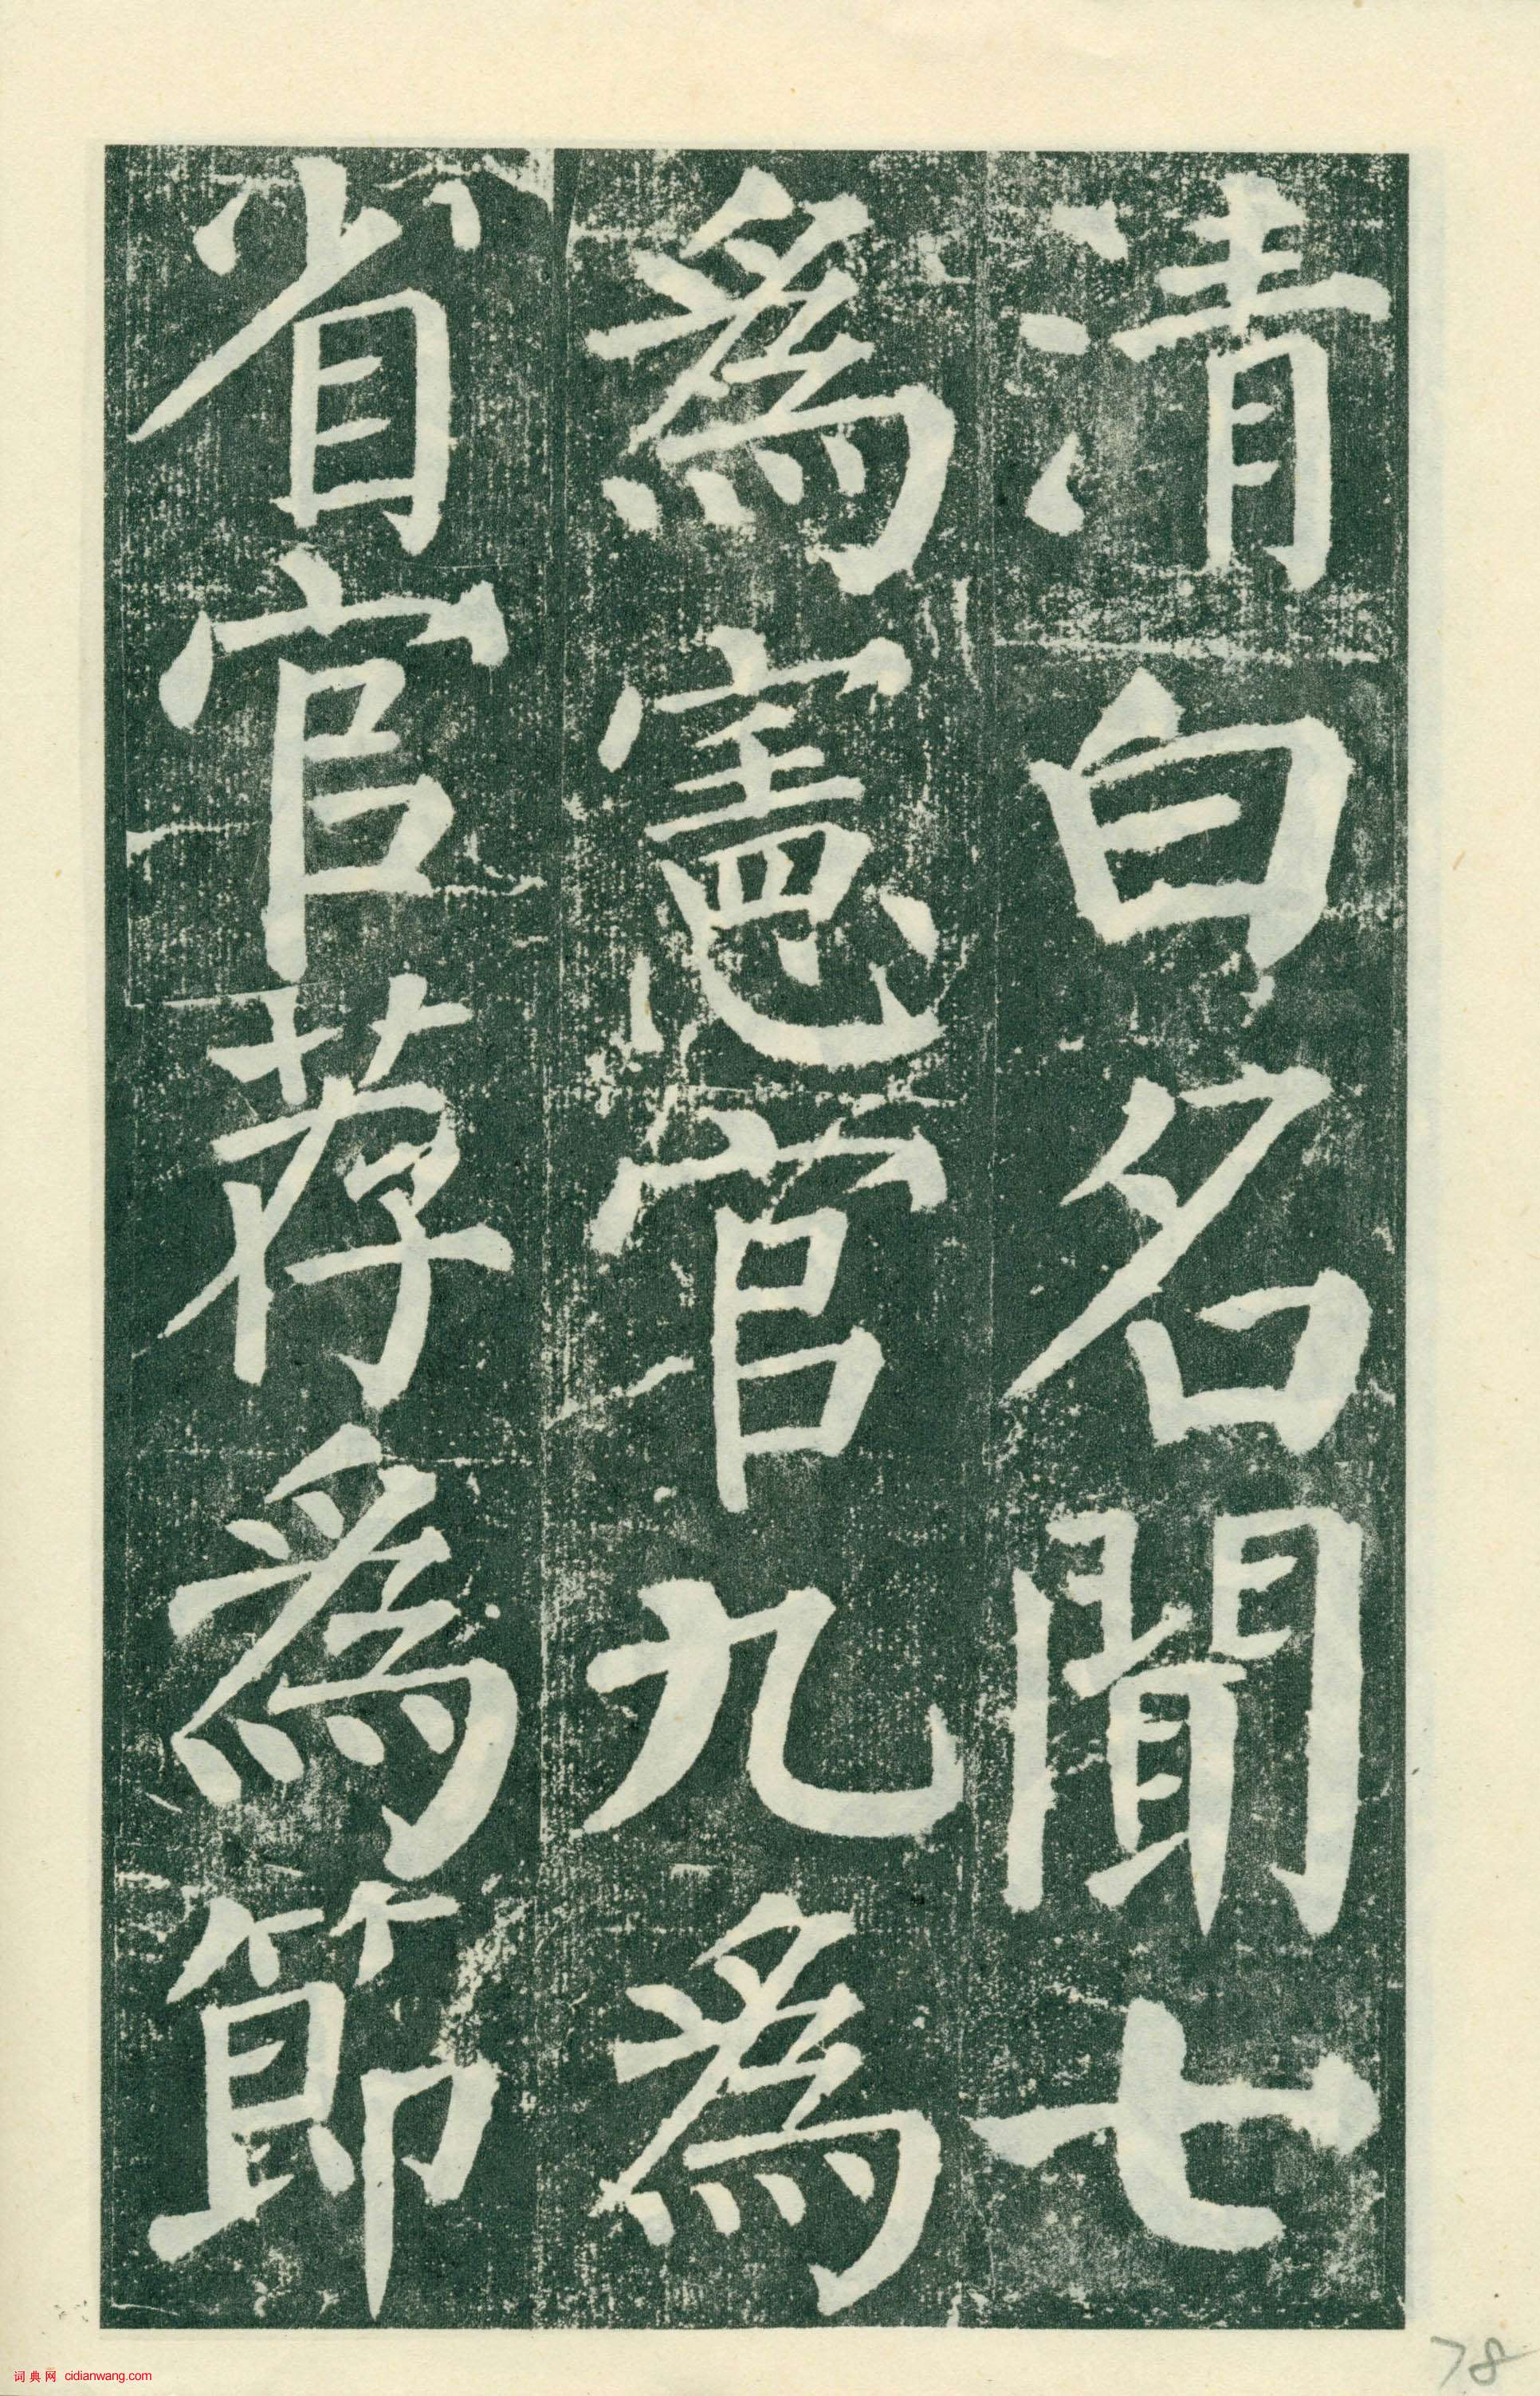 清白名聞七
為憲官九為
省官荐為節
78
词典网 cidianwang.com